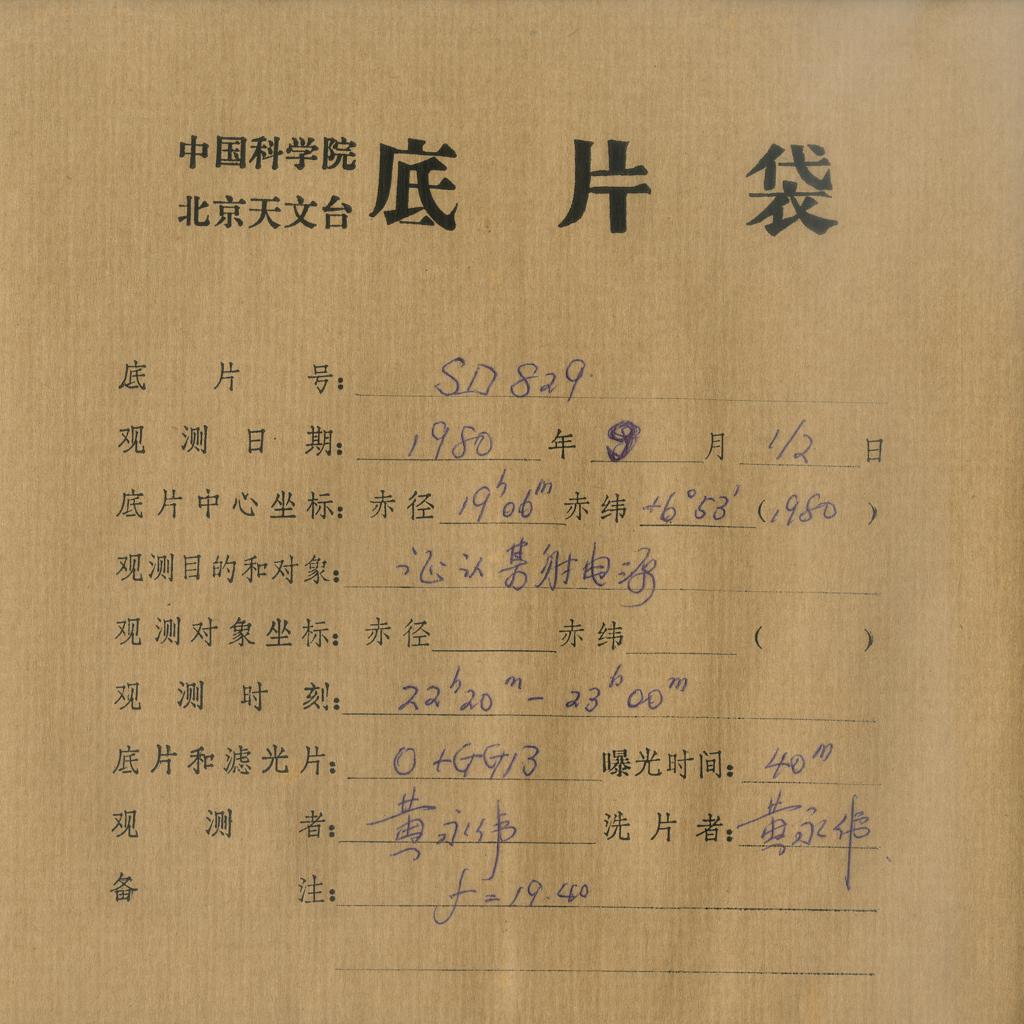 中国科学院
北京天文台 底片袋
底片号: SD829
观测日期: 1980年 月 1/2 日
底片中心坐标: 赤径 19ʰ06ᵐ 赤纬 +6°53′ (1980)
观测目的和对象: 证认某射电源
观测对象坐标: 赤径 赤纬 ( )
观测时刻: 22ʰ20ᵐ - 23ʰ00ᵐ
底片和滤光片: O+GG13 曝光时间: 40ᵐ
观测者: 黄永伟 洗片者: 黄永伟
备注: f=19.40